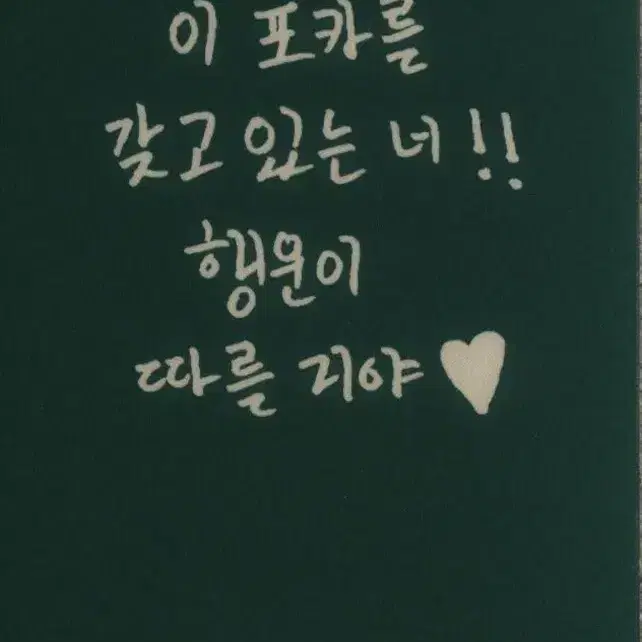 이 포카를
갖고 있는 너!!
행운이
따를 지야 ♥